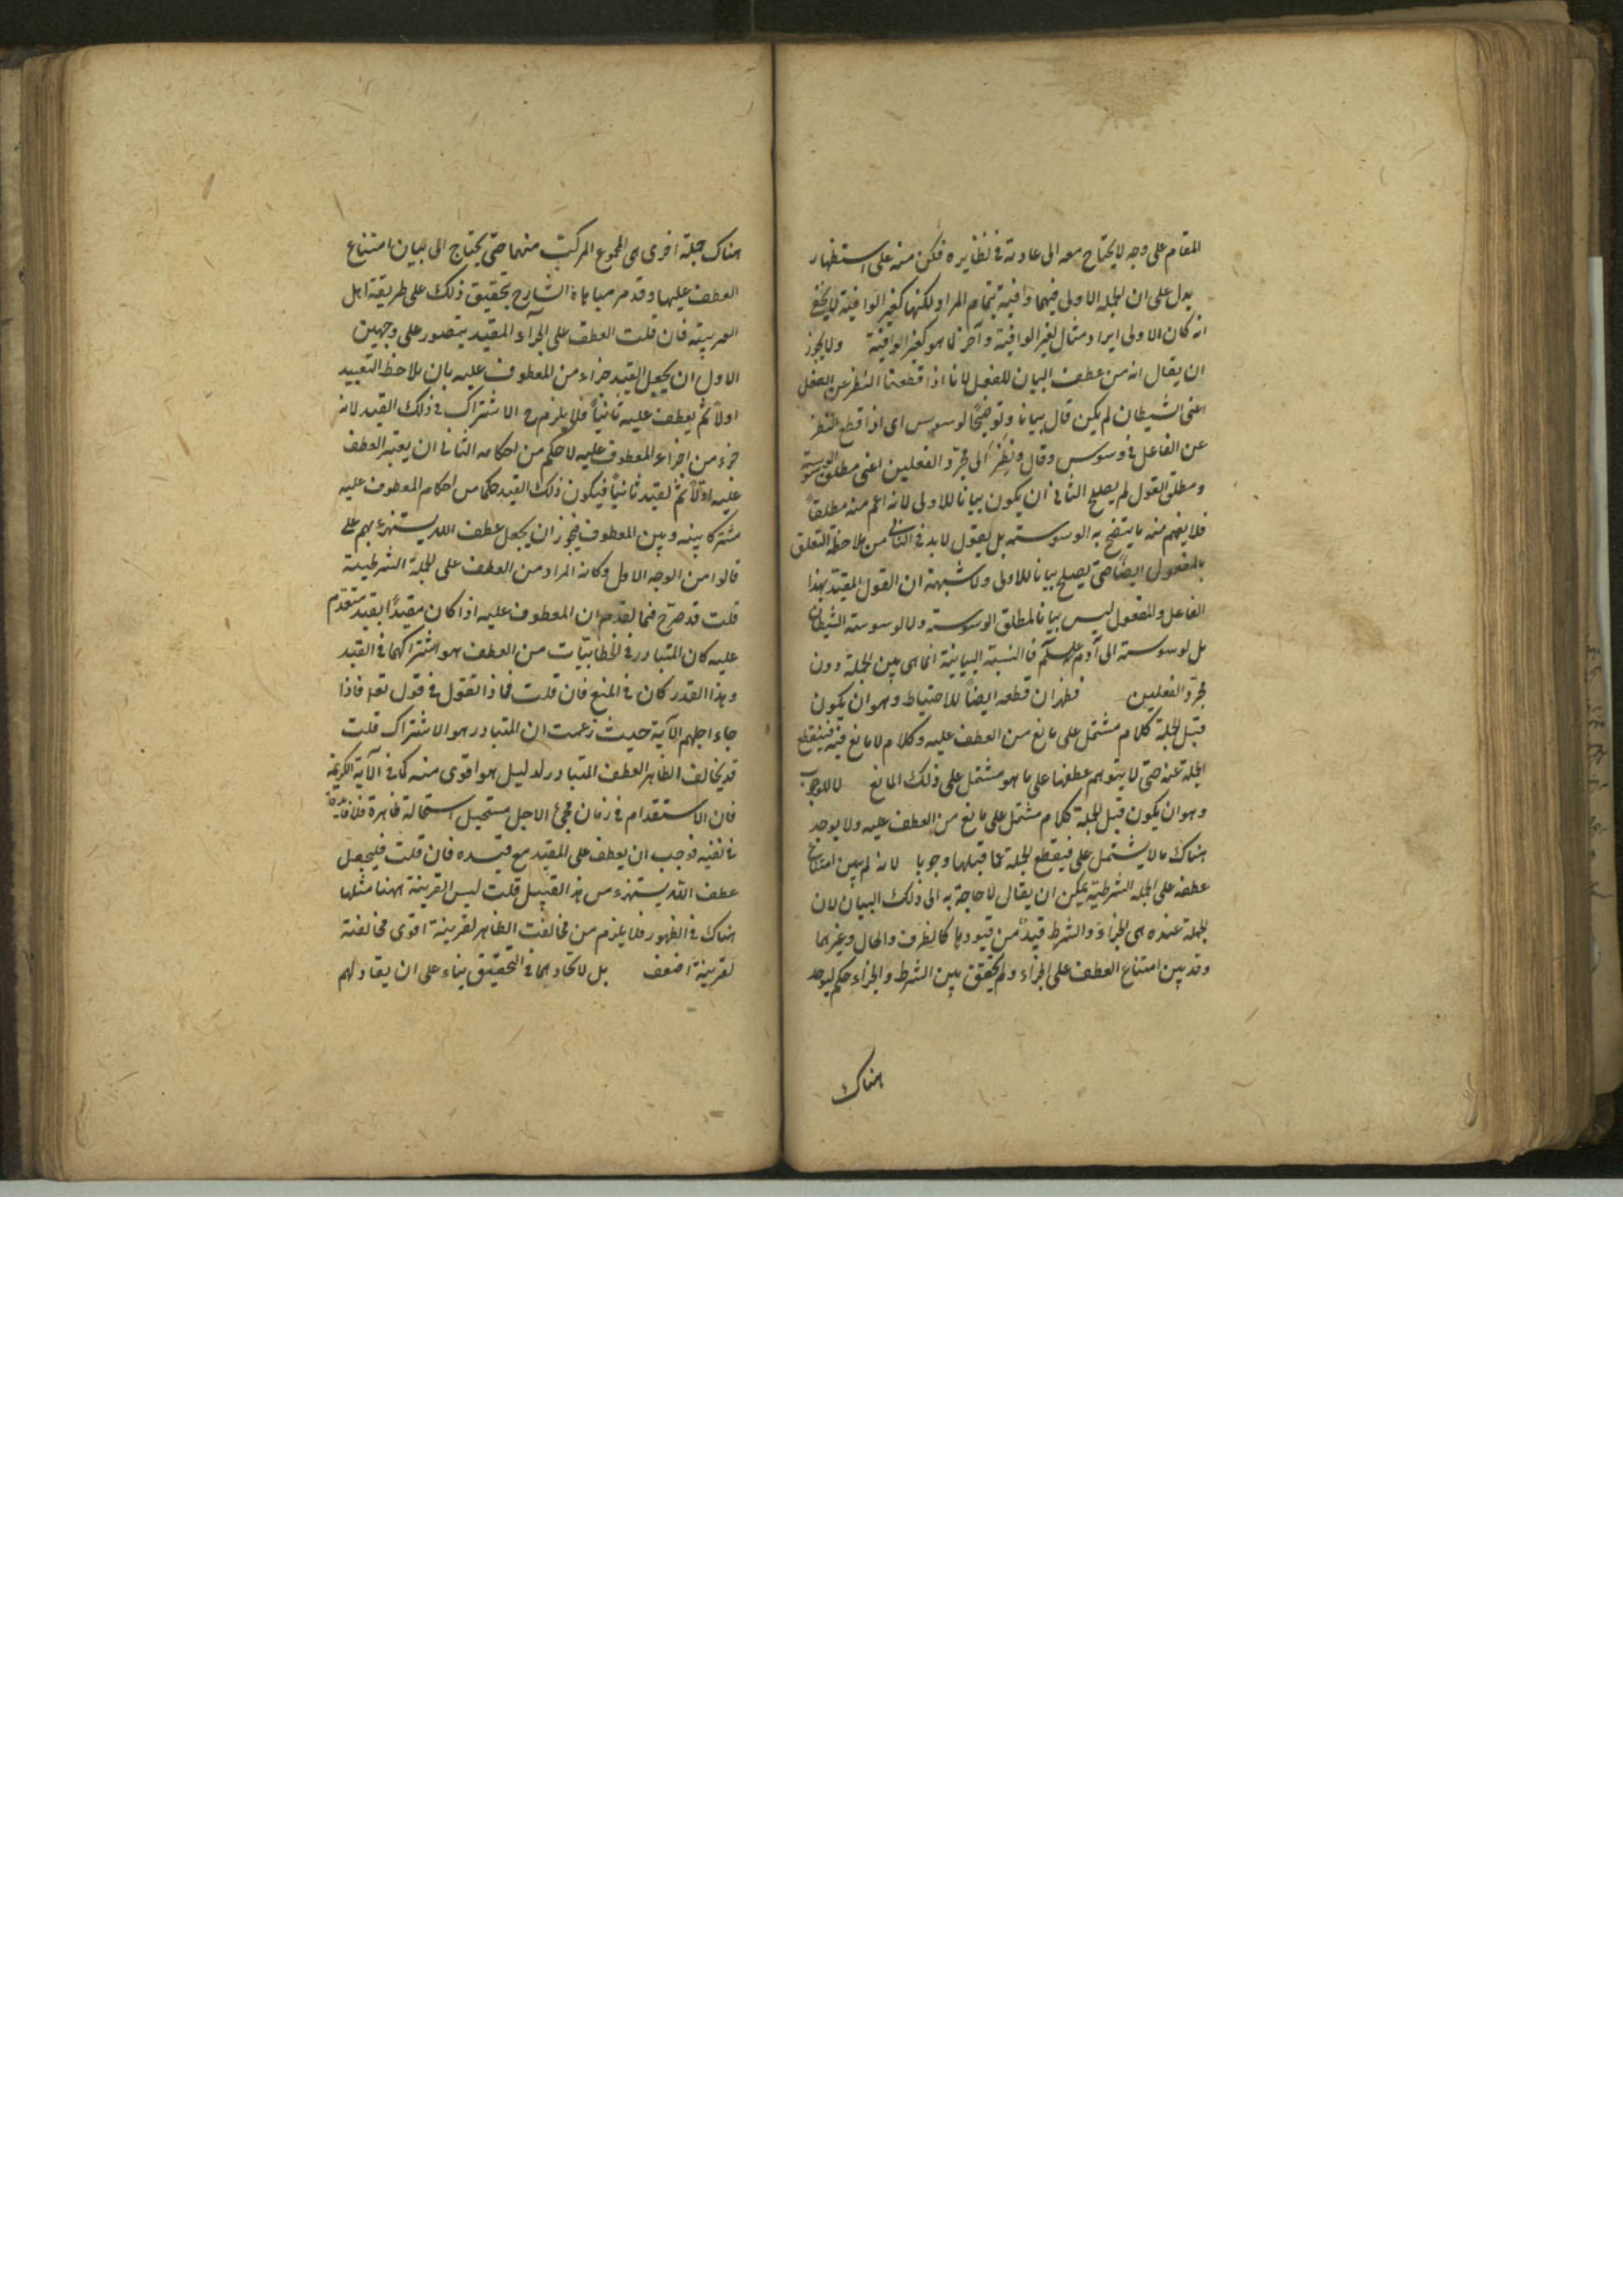 المقام على وجه لا يحتاج معه الى عادته في نظايره فكن منه على استظهار
يدل على ان الجملة الاولى فيهما وافية بتمام المراد لكنها كغير الوافية لا يخفى
انه كان الاولى ايراد مثال لغير الوافية وآخر لما هو كغير الوافية ولا يجوز
ان يقال انه من عطف البيان للفعل لانا اذا قطعنا النظر عن الفاعل
اعنى الشيطان لم يكن قال بيانا وتوضيحا لوسوس اى اذا قطع النظر
عن الفاعل في وسوس وقال ونظر الى مجرد الفعلين اعنى مطلق الوسوسة
ومطلق القول لم يصلح الثاني ان يكون بيانا للاولى لانه اعم منه مطلقاً
فلا يفهم منه ما يتضح به الوسوسة بل يقول لا بد في الثاني من ملاحظة التعلق
بالمفعول ايضاً حتى يصلح بيانا للاول ولا شبهة ان القول المقيد بهذا
الفاعل والمفعول ليس بيانا لمطلق الوسوسة ولا لوسوسة الشيطان
بل لوسوسته الى آدم عليه السلم فالنسبة البيانية انما هى بين الجملة دون
مجرد الفعلين فظهر ان قطعه ايضاً للاحتياط وهو ان يكون
قبل الجملة كلام مشتمل على مانع من العطف عليه وكلام لا مانع فيه فينقطع
الجملة عنه حتى لا يتوهم عطفها على ما هو مشتمل على ذلك المانع لا للوجوب
وهو ان يكون قبل الجملة كلام مشتمل على مانع من العطف عليه ولا يوجد
هناك ما لا يشتمل على فيقطع الجملة عما قبلها وجوبا لانه لم يبين امتناع
عطفه على الجملة الشرطية يمكن ان يقال لا حاجة به الى ذلك البيان لان
الجملة عنده هى الجزاء والشرط قيد من قيودها كالظرف والحال وغيرهما
وقد بين امتناع العطف على الجزاء ولم يتحقق بين الشرط والجزاء حكم ليوجد
هناك
هناك جملة اخرى هى المجموع المركب منهما حتى يحتاج الى بيان امتناع
العطف عليها وقد مر مباهاة الشارح بتحقيق ذلك على طريقة اهل
العربية فان قلت العطف على الجزآء المقيد يتصور على وجهين
الاول ان يجعل القيد جزاء من المعطوف عليه بان يلاحظ التقييد
اولاً ثم يعطف عليه ثانياً فلا يلزم ح الاشتراك في ذلك القيد لانه
جزء من اجزاء المعطوف عليه لا حكم من احكامه الثاني ان يعتبر العطف
عليه اولاً ثم يقيد ثانياً فيكون ذلك القيد حكما من احكام المعطوف عليه
مشتركا بينه وبين المعطوف فيجوز ان يجعل عطف الله يستهزء بهم على
قالوا من الوجه الاول وكانه المراد من العطف على الجملة الشرطية
قلت قد صرح فيما تقدم ان المعطوف عليه اذا كان مقيداً بقيد متقدم
عليه كان المتبادر في الخطابيات من العطف هو اشتراكهما في القيد
وهذا القدر كان في المنع فان قلت فماذا تقول في قول تعه فاذا
جاء اجلهم الآية حيث زعمت ان المتبادر هو الاشتراك قلت
قد يخالف الظاهر العطف المتبادر لدليل هو اقوى منه كما في الآية الكريمة
فان الاستقدام في زمان مجئ الاجل مستحيل استحالة ظاهرة فلا فائدة
في نفيه فوجب ان يعطف على المقيد مع قيده فان قلت فليجعل
عطف الله يستهزء من هذا القبيل قلت ليس القرينة ههنا مثلها
هناك في الظهور فلا يلزم من مخالفت الظاهر لقرينة اقوى مخالفته
لقرينة اضعف بل لاتحادهما في التحقيق بناء على ان يقاد لهم